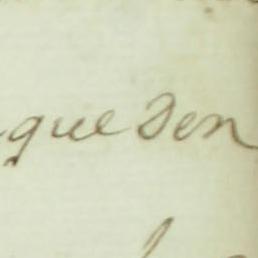 que den